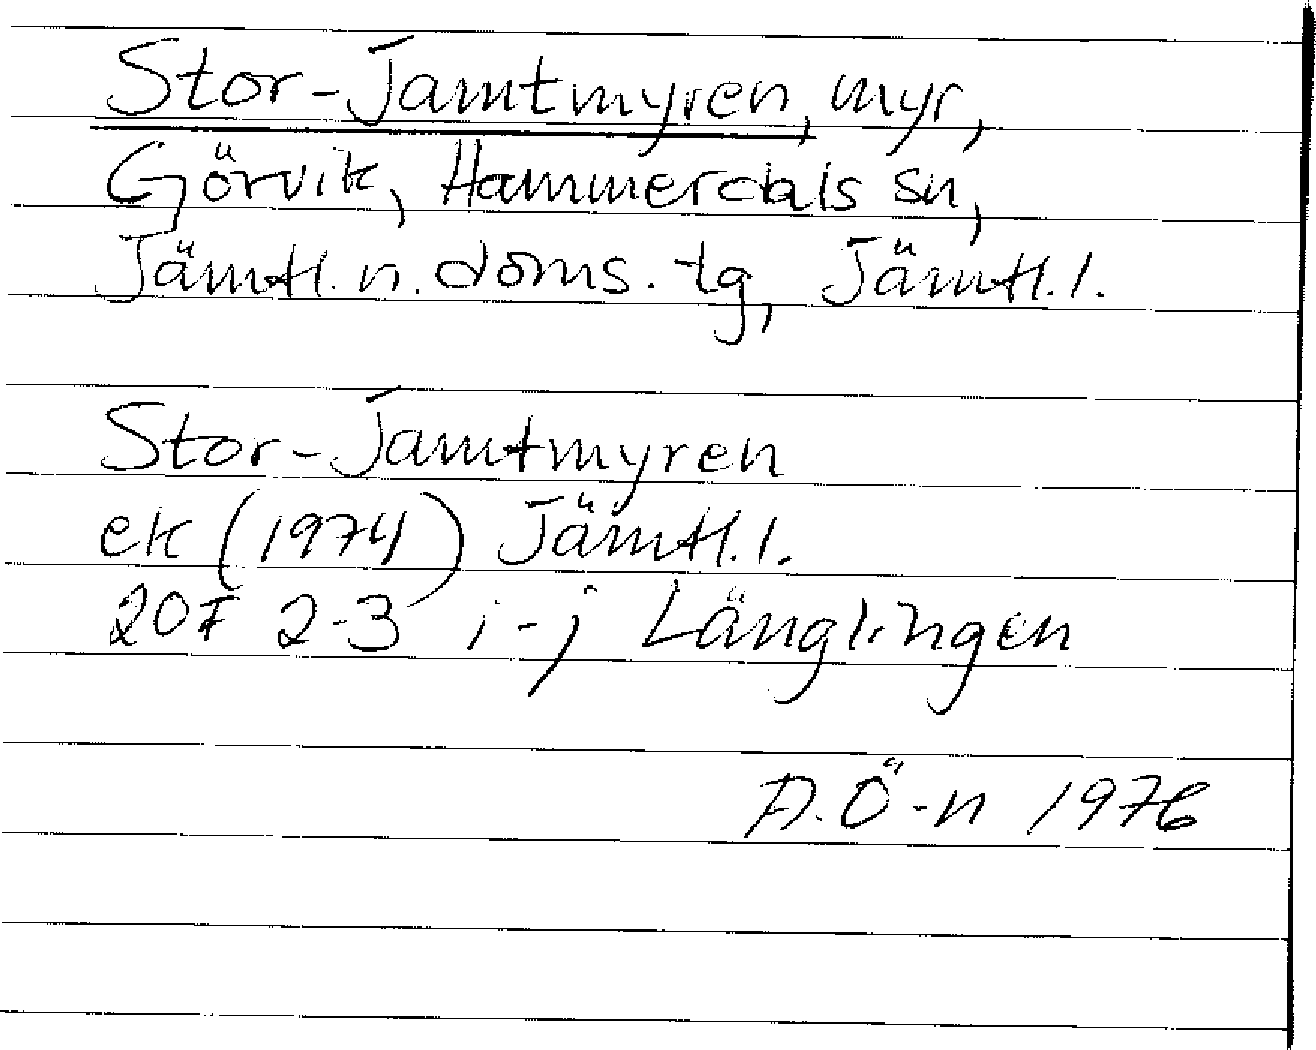 Stor-Jamtmyren, myr,
Görvik, Hammerdals sn,
Jämtl. n. doms. tg, Jämtl. l.
Stor-Jamtmyren
ek (1974) Jämtl. l.
20F 2-3 i-j Långlingen
A.Ö-n 1976